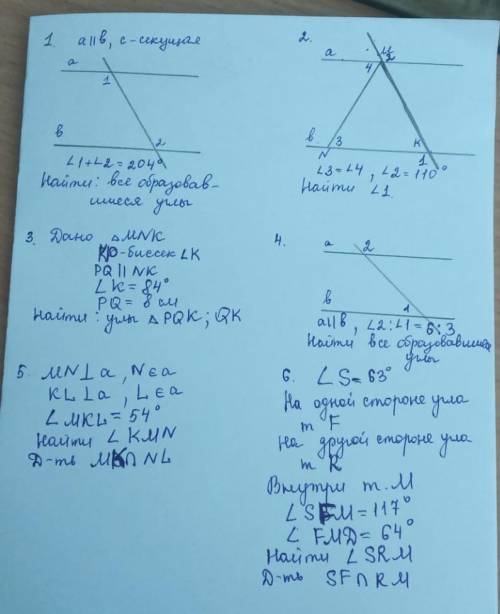 1. a||в, с-секущая
a
1
в
2
∠1+∠2=204°
Найти: все образовав-
шиеся углы
2.
a
M
4
2
в
3
N
K
1
∠3=∠4, ∠2=110°
Найти ∠1.
3. Дано △MNK
-биссек ∠K
PQ || NK
∠K=84°
PQ=8 см
Найти: углы △PQK; QK
4.
a
2
в
1
a||в, ∠2:∠1=6:3
Найти все образовавшиеся
углы
5. MN⊥a, N∈a
KL⊥a, L∈a
∠MKL=54°
Найти ∠KMN
Д-ть MK∩NL
6. ∠S=63°
На одной стороне угла
т F
На другой стороне угла
т R
Внутри т.М
∠SFM=117°
∠FMD=64°
Найти ∠SRM
Д-ть SF∩RM